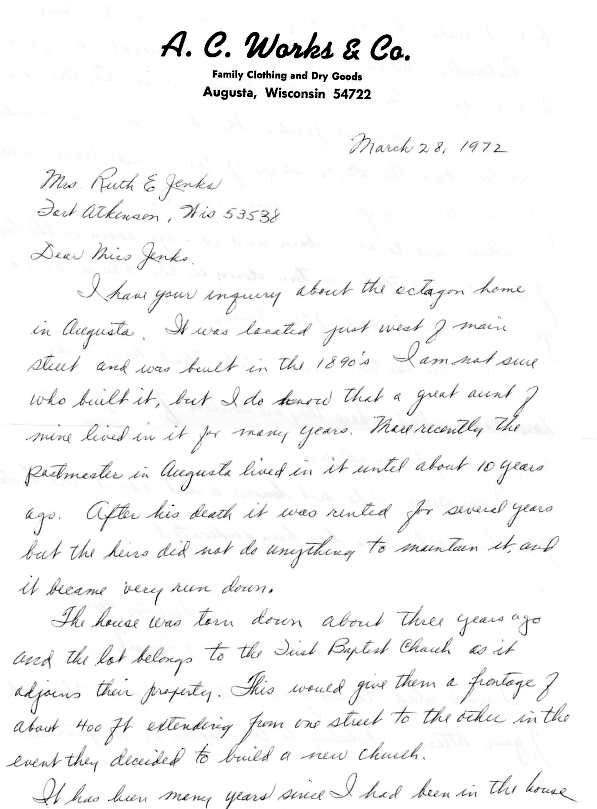 A. C. Works & Co.
Family Clothing and Dry Goods
Augusta, Wisconsin 54722
March 28, 1972
Mrs Ruth E Jenks
Fort Atkinson, Wis 53538
Dear Miss Jenks.
I have your inquiry about the octagon home
in Augusta. It was located just west of main
street and was built in the 1890's I am not sure
who built it, but I do know that a great aunt of
mine lived in it for many years. More recently the
postmaster in Augusta lived in it until about 10 years
ago. After his death it was rented for several years
but the heirs did not do anything to maintain it, and
it became very run down.
The house was torn down about three years ago
and the lot belongs to the First Baptist Church as it
adjoins their property. This would give them a frontage of
about 400 ft extending from one street to the other in the
event they decided to build a new church.
It has been many years since I had been in the house